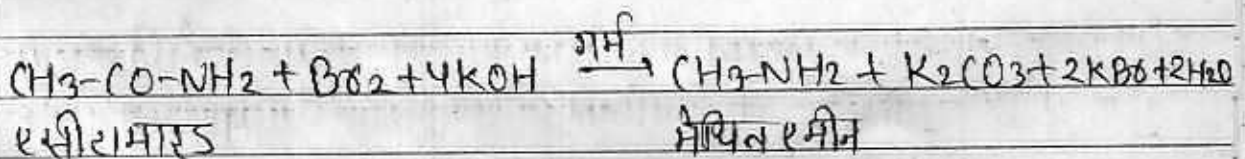 गर्म
CH3-CO-NH2 + Br2 + 4KOH → CH3-NH2 + K2CO3 + 2KBr + 2H2O
एसीटामाइड मेथिल एमीन